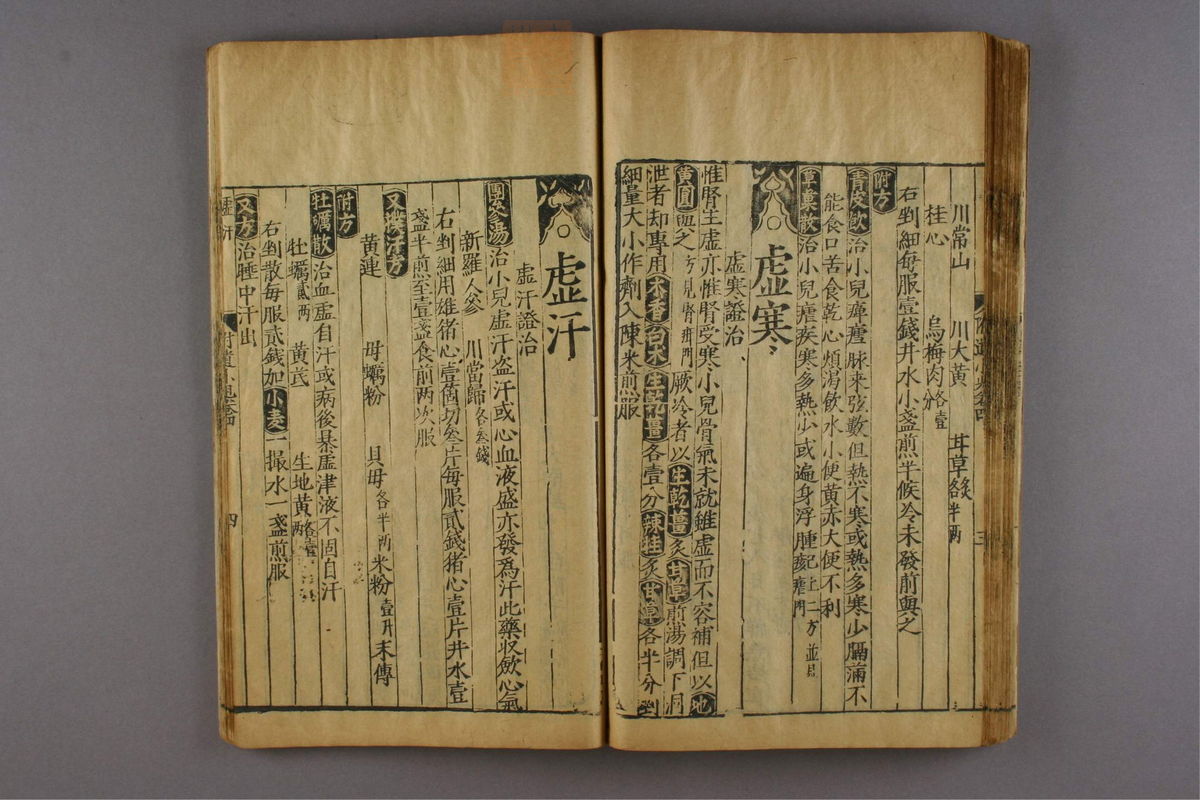 川常山 川大黄 甘草炙各半两
桂心 烏梅肉各壹分
右剉細每服壹錢井水小盞煎半候冷未發前與之
附方
青皮飲治小兒癉瘧脉来弦數但熱不寒或熱多寒少膈滿不
能食口苦舌乾心煩渴飲水小便黄赤大便不利
草菓散治小兒瘧疾寒多熱少或遍身浮腫
虚寒
虚寒證治
惟腎主虚亦惟腎受寒小兒骨氣未就雖虚而不容補但以地
黄圓與之方見腎疳門厥冷者以生乾薑炙甘草煎湯調下洞
泄者却專用木香白术生乾薑各壹分辣桂炙甘草各半分剉
細量大小作劑入陳米煎服
虚汗
虚汗證治
團參湯治小兒虚汗盗汗或心血液盛亦發為汗此藥収斂心氣
新羅人參 川當歸各叁錢
右剉細用雄猪心壹箇切叁片每服貳錢猪心壹片井水壹
盞半煎至壹盞食前两次服
又撲汗方
黄連 母蠣粉 貝母各半两米粉壹升末傅
附方
牡蠣散治血虚自汗或病後暴虚津液不固自汗
牡蠣貳两 黄芪 生地黄各壹两
右剉散每服貳錢加小麦一撮水一盞煎服
又方治睡中汗出
虚汗
四
三